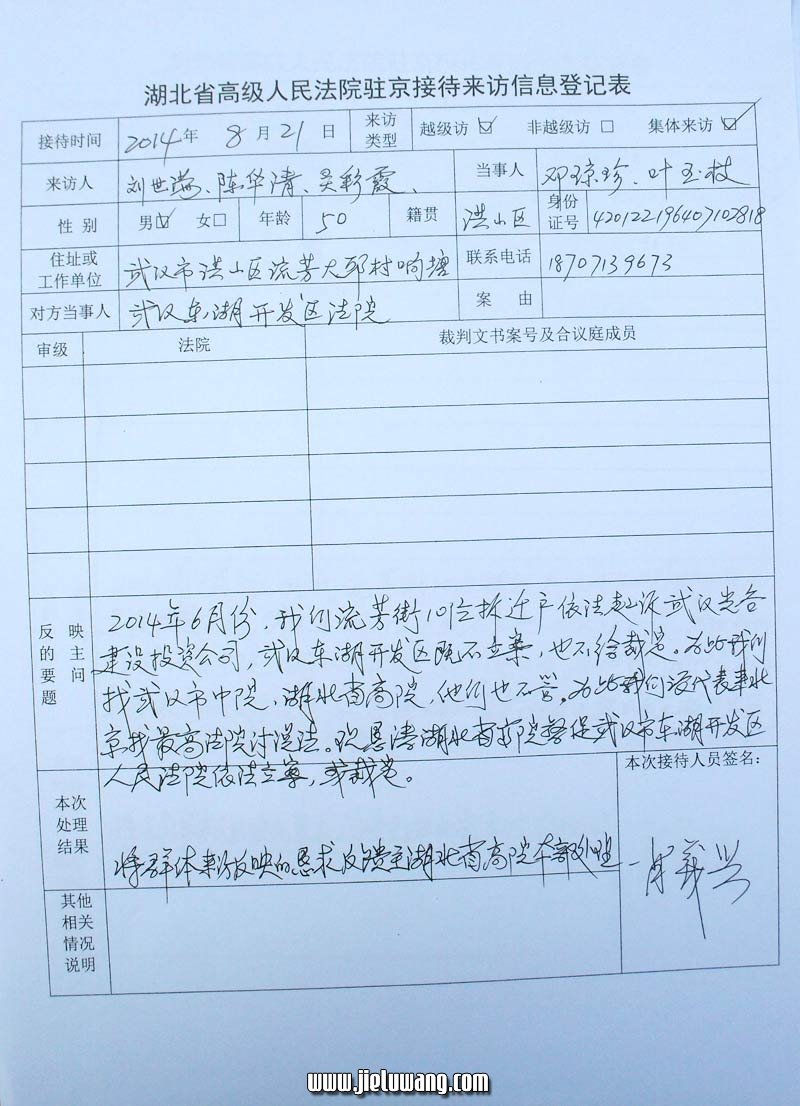 湖北省高级人民法院驻京接待来访信息登记表
接待时间 2014年 8月21日 来访类型 越级访☑ 非越级访□ 集体来访☑
来访人 刘世 、陈华清、吴彩霞、 当事人 邓琼珍、叶玉枝
性别 男☑ 女□ 年龄 50 籍贯 洪山区 身份证号 420122196407102818
住址或工作单位 武汉市洪山区流芳大邱村响塘 联系电话 18707139673
对方当事人 武汉东湖开发区法院 案由
审级 法院 裁判文书案号及合议庭成员
反映的主要问题
2014年6月份,我们流芳街10位拆迁户依法起诉武汉光谷
建设投资公司,武汉东湖开发区既不立案,也不给裁定。为此我们
找武汉市中院、湖北省高院,他们也不管。为此我们派代表来北
京找最高法院讨说法。现恳请湖北省高院督促武汉市东湖开发区
人民法院依法立案,或裁定。
本次接待人员签名:
本次处理结果
将群体来访反映的恳求反馈至湖北省高院本部处理
其他相关情况说明
www.jieluwang.com